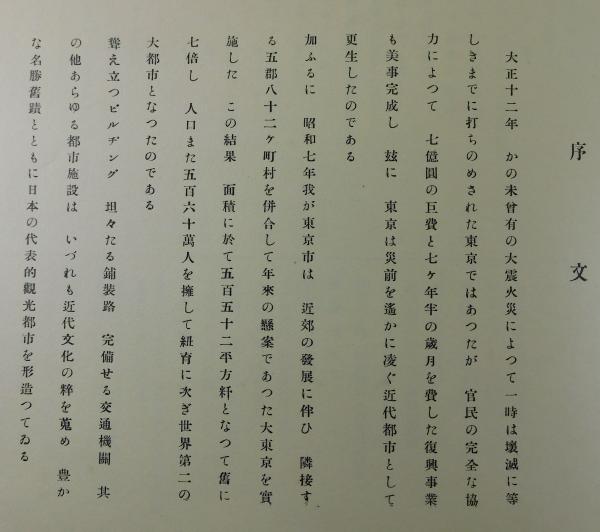 序文
大正十二年 かの未曾有の大震火災によつて一時は壊滅に等
しきまでに打ちのめされた東京ではあつたが 官民の完全な協
力によつて 七億圓の巨費と七ケ年半の歳月を費した復興事業
も美事完成し 玆に 東京は災前を遙かに凌ぐ近代都市として
更生したのである
加ふるに 昭和七年我が東京市は 近郊の發展に伴ひ 隣接す
る五郡八十二ケ町村を併合して年來の懸案であつた大東京を實
施した この結果 面積に於て五百五十二平方粁となつて舊に
七倍し 人口また五百六十萬人を擁して紐育に次ぎ世界第二の
大都市となつたのである
聳え立つビルヂング 坦々たる鋪裝路 完備せる交通機關 其
の他あらゆる都市施設は いづれも近代文化の粹を蒐め 豊か
な名勝舊蹟とともに日本の代表的觀光都市を形造つてゐる